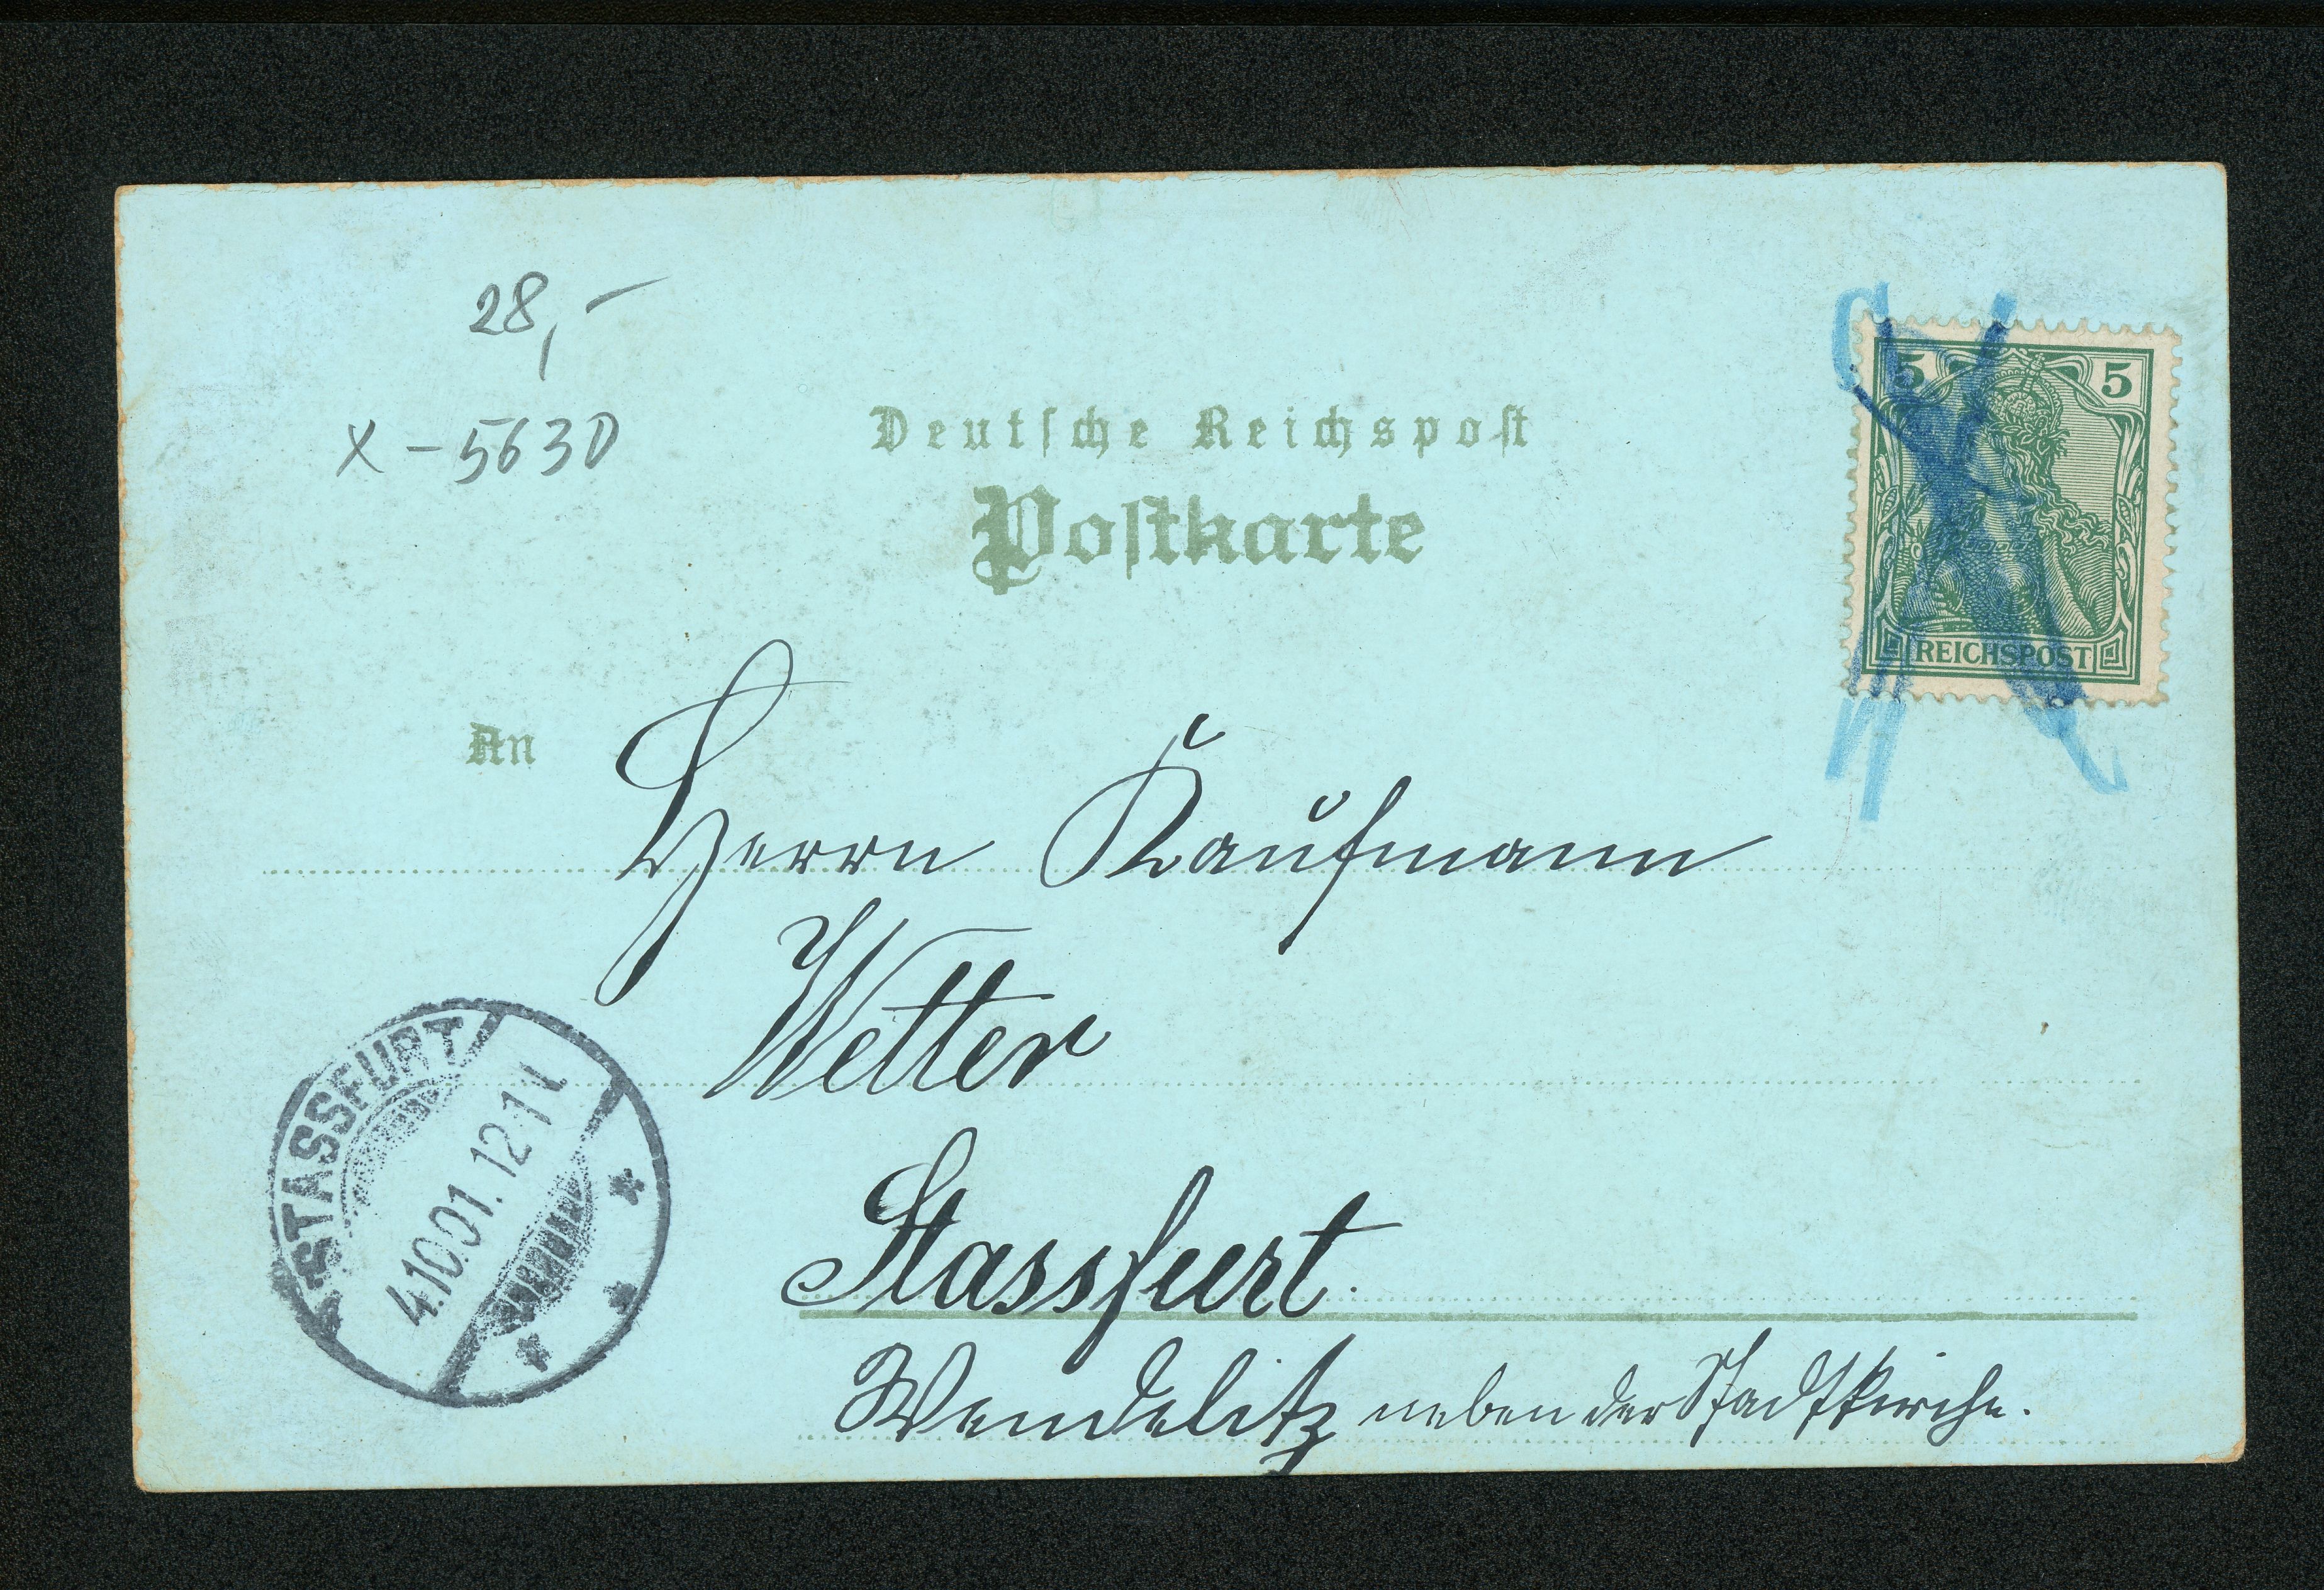 28,-
x - 5630
Deutſche Reichspoſt
Poſtkarte
5 5
REICHSPOST
An
Herrn Kaufmann
Wetter
Stassfurt.
Wendelitz neben der Stadtkirche.
STASSFURT
4.10.01. 12-1